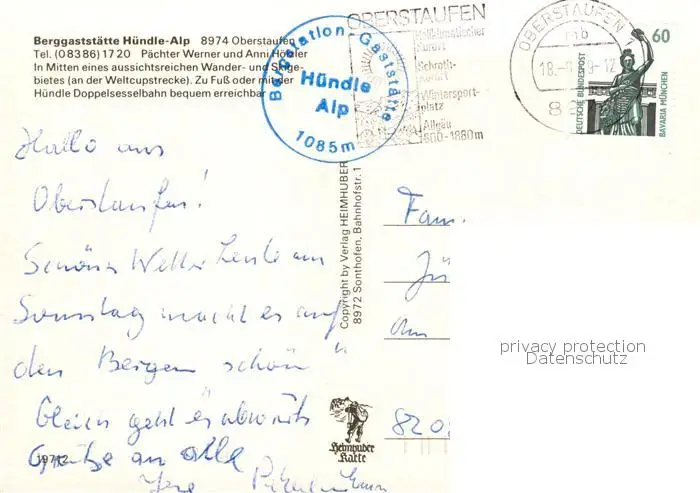 Berggaststätte Hündle-Alp 8974 Oberstaufen
Tel. (08386) 1720 Pächter Werner und Anni Höfler
In Mitten eines aussichtsreichen Wander- und Skige-
bietes (an der Weltcupstrecke). Zu Fuß oder mit der
Hündle Doppelsesselbahn bequem erreichbar
Bergstation-Gaststätte
Hündle
Alp
1085m
OBERSTAUFEN
Heilklimatischer
Kurort
Schroth-
kurort
Wintersport-
platz
Allgäu
800-1880m
OBERSTAUFEN
mb
18.
9-12
60
DEUTSCHE BUNDESPOST
BAVARIA MÜNCHEN
Hallo aus
Oberstaufen!
Schönes Wetter heute am
Sonntag macht es auf
den Bergen schön
Gleich geht es abwärts
Grüße an alle
Copyright by Verlag HEIMHUBER
8972 Sonthofen, Bahnhofstr. 1
Fam.
Jü
Am
820
Heimhuber
Karte
19712
privacy protection
Datenschutz